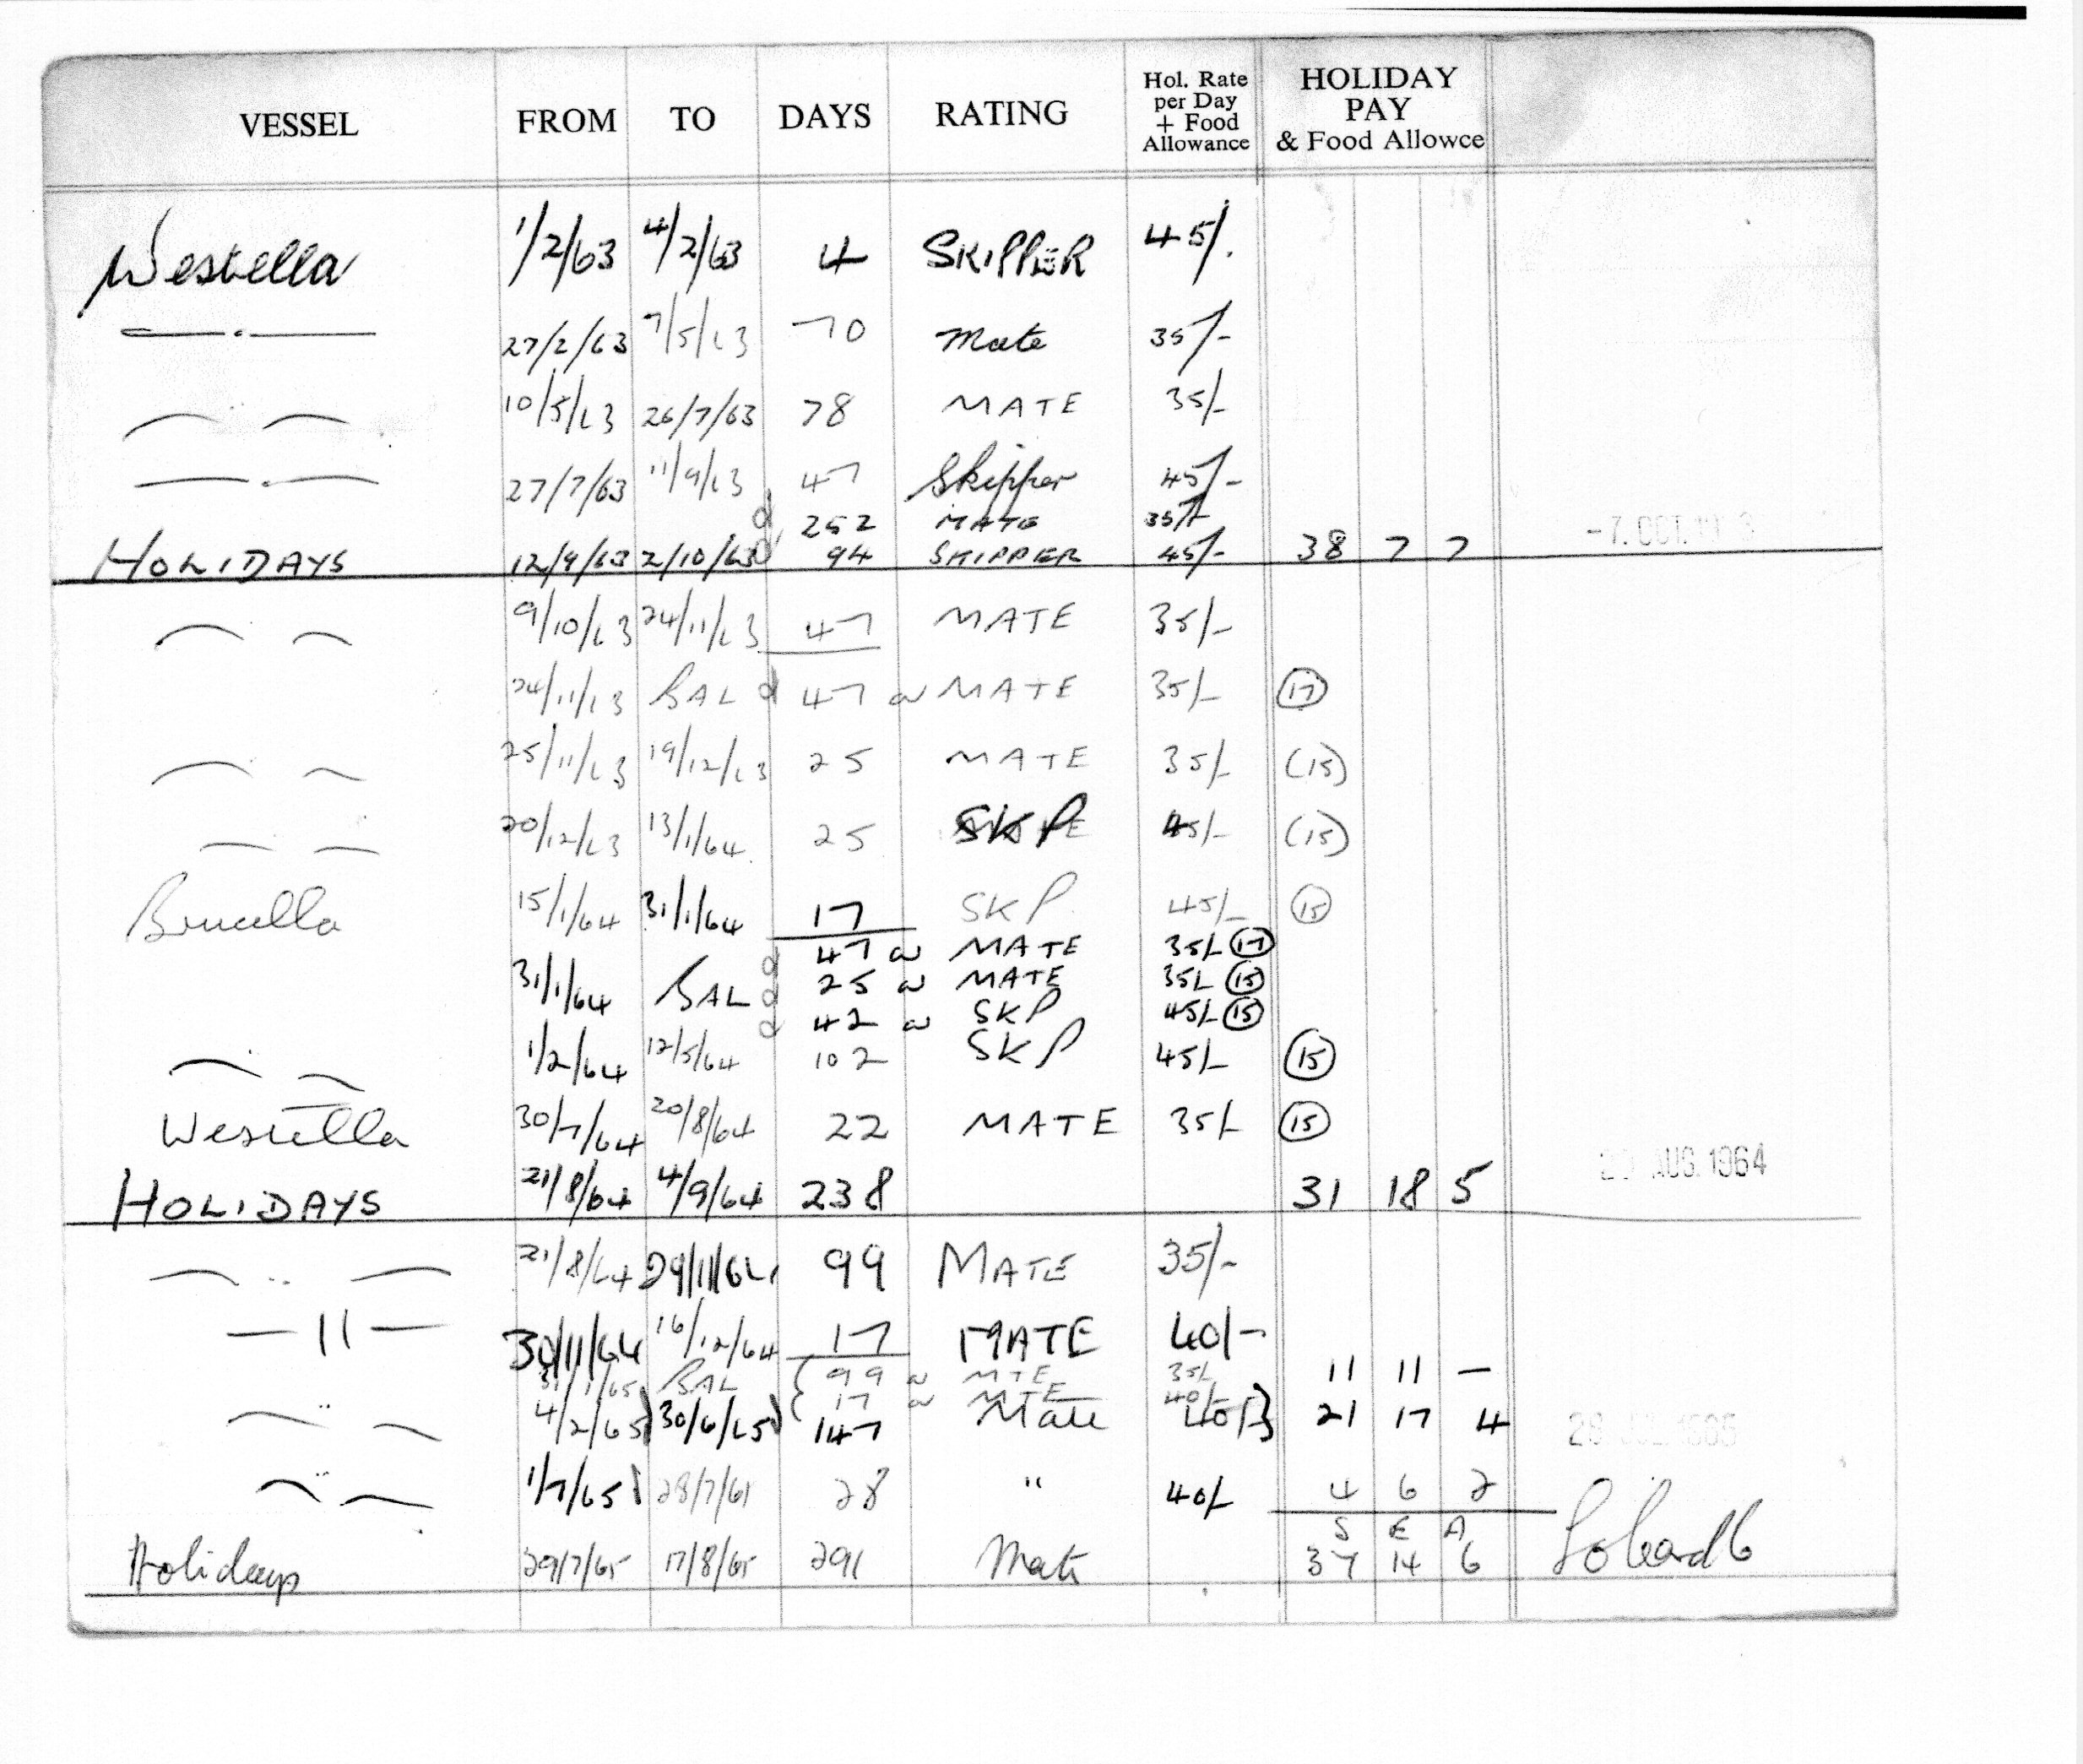 VESSEL FROM TO DAYS RATING Hol. Rate per Day + Food Allowance HOLIDAY PAY & Food Allowce
Westella 1/2/63 4/2/63 4 SKIPPER 45/.
27/2/63 7/5/63 70 Mate 35/-
10/5/63 26/7/63 78 MATE 35/-
27/7/63 11/9/63 47 Skipper 45/-
252 MATE 35/-
HOLIDAYS 12/9/63 2/10/63 94 SKIPPER 45/- 38 7 7 -7. OCT. 19 3
9/10/63 24/11/63 47 MATE 35/-
24/11/63 BAL 47 MATE 35/- (17)
25/11/63 19/12/63 25 MATE 35/- (15)
20/12/63 13/1/64 25 SKP 45/- (15)
Brucella 15/1/64 31/1/64 17 SKP 45/- (15)
47 MATE 35/- (17)
31/1/64 BAL 25 MATE 35/- (15)
42 SKP 45/- (15)
1/2/64 12/5/64 102 SKP 45/- (15)
Westella 30/7/64 20/8/64 22 MATE 35/- (15)
HOLIDAYS 21/8/64 4/9/64 238 31 18 5 AUG. 1964
21/8/64 29/11/64 99 MATE 35/-
—11— 30/11/64 16/12/64 17 MATE 40/-
31/1/65 BAL 99 MTE 35/- 11 11 —
17 MTE 40/-
4/2/65 30/6/65 147 Mate 40/- 21 17 4
1/7/65 28/7/65 28 " 40/- 4 6 2
S E A
Holidays 29/7/65 17/8/65 291 Mate 37 14 6